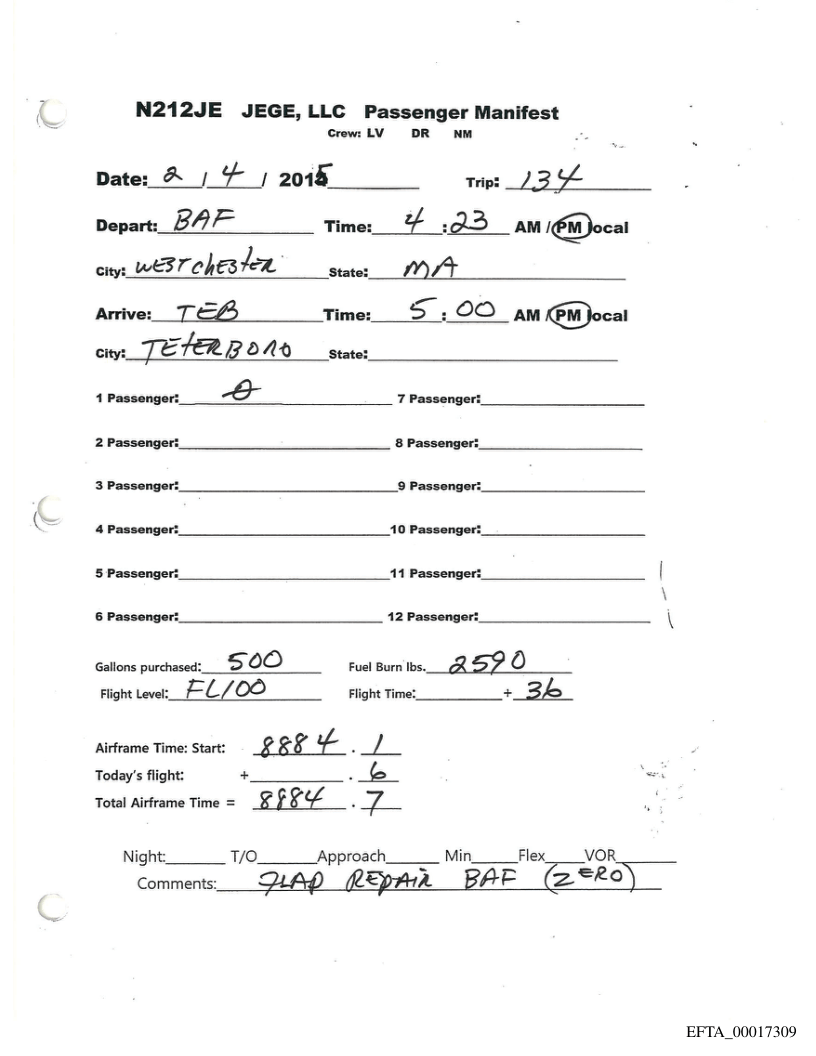 N212JE JEGE, LLC Passenger Manifest
Crew: LV DR NM
Date: 2 / 4 / 2015 Trip: 134
Depart: BAF Time: 4 :23 AM / PM local
City: WESTCHESTER State: MA
Arrive: TEB Time: 5 : 00 AM / PM local
City: TETERBORO State:
1 Passenger: 0 7 Passenger:
2 Passenger: 8 Passenger:
3 Passenger: 9 Passenger:
4 Passenger: 10 Passenger:
5 Passenger: 11 Passenger:
6 Passenger: 12 Passenger:
Gallons purchased: 500 Fuel Burn lbs. 2590
Flight Level: FL100 Flight Time: + 36
Airframe Time: Start: 8884 . 1
Today's flight: + . 6
Total Airframe Time = 8884 . 7
Night: T/O Approach Min Flex VOR
Comments: FLAP REPAIR BAF (ZERO)
EFTA_00017309